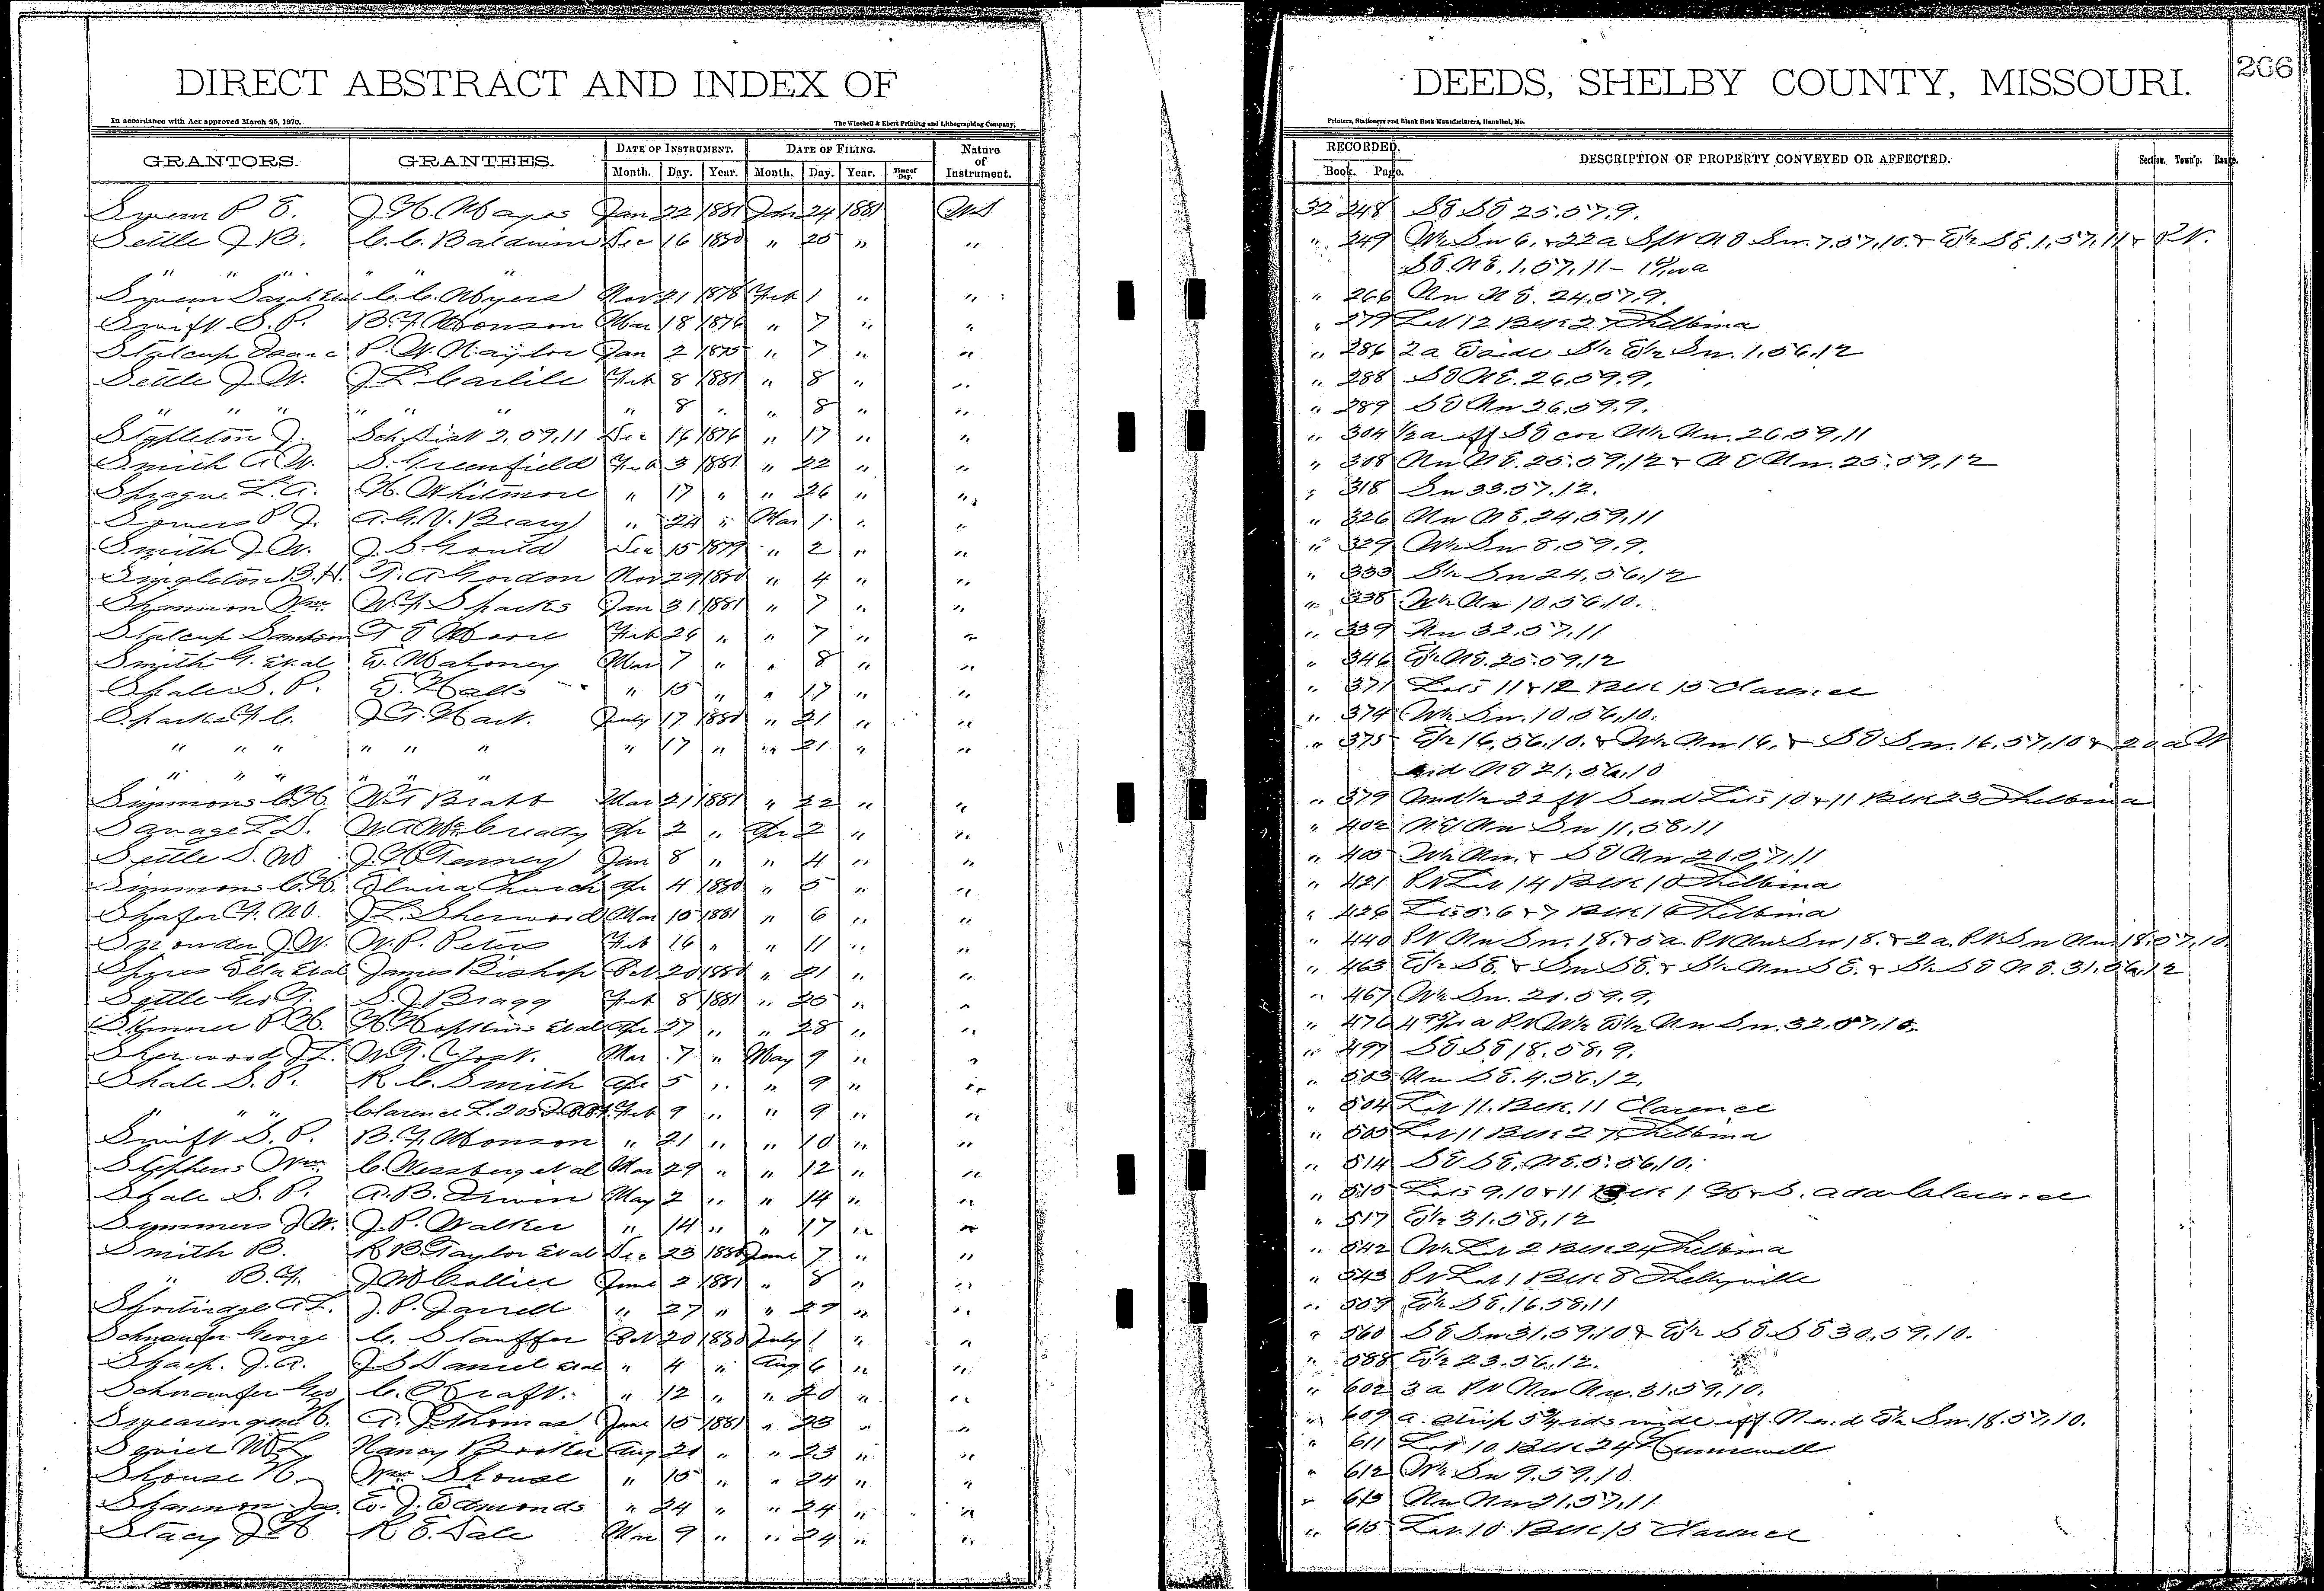 DIRECT ABSTRACT AND INDEX OF
DEEDS, SHELBY COUNTY, MISSOURI.
266
In accordance with Act approved March 25, 1970.
The Winchell & Ebert Printing and Lithographing Company,
Printers, Stationers and Blank Book Manufacturers, Hannibal, Mo.
GRANTORS. GRANTEES. DATE OF INSTRUMENT. DATE OF FILING. Nature of Instrument. RECORDED. DESCRIPTION OF PROPERTY CONVEYED OR AFFECTED. Section. Town'p. Range.
Month. Day. Year. Month. Day. Year. Time of Day. Book. Page.
Swem P. E. J. H. Mayes Jan 22 1881 Jan 24 1881 WD 32 248 SE SE 25.57.9.
Settle J. B. C. C. Baldwin Dec 16 1880 " 25 " " " 249 W½ Sw 6, & 22a NE Sw. 7.57.10. & E½ SE. 1.57.11 & Pt.
" " " " " " SE. NE. 1.57.11 -
Swem Sarah Etal C. C. Myers Nov 21 1878 Feb 1 " " " 266 Nw NE. 24.57.9.
Swift S. P. B. F. Monson Mar 18 1876 " 7 " " " 279 Lot 12 Blk 27 Shelbina
Stalcup Isaac P. W. Naylor Jan 2 1875 " 7 " " " 286 2a E side S½ E½ Sw. 1.56.12
Settle J. W. J. L. Carlile Feb 8 1881 " 8 " " " 288 SE NE. 26.59.9.
" " " " " " " 8 " " 8 " " " 289 SE Nw 26.59.9.
Stapleton J. Sch. Dist 2.59.11 Dec 16 1876 " 17 " " " 304 ½a off SE cor W½ Nw. 26.59.11
Smith A. W. S. Greenfield Feb 3 1881 " 22 " " " 308 Nw NE. 25.59.12 & NE Nw. 25.59.12
Sprague L. A. H. Whitmore " 17 " " 26 " " " 318 Sw 33.57.12.
Somers P. J. A. G. V. Beary " 24 " Mar 1 " " " 326 Nw NE. 24.59.11
Smith J. W. J. S. Gould Dec 15 1879 " 2 " " " 329 W½ Sw 8.59.9.
Singleton B. H. T. A. Gordon Nov 29 1880 " 4 " " " 333 S½ Sw 24.56.12
Shannon Wm W. F. Sparks Jan 31 1881 " 7 " " " 338 W½ Nw 10.56.10.
Stalcup Samson T. E. Moore Feb 26 " " 7 " " " 339 Nw 32.57.11
Smith G. Etal E. Mahoney Mar 7 " " 8 " " " 346 E½ NE. 25.59.12
Shale S. P. E. Walls " 15 " " 17 " " " 371 Lots 11 & 12 Blk 15 Clarence
Sparks F. C. J. T. Hart. July 17 1880 " 21 " " " 374 W½ Sw. 10.56.10.
" " " " " " " 17 " " 21 " " " 375 E½ 16.56.10. & W½ Nw 16, & SE Sw. 16.57.10 & 20a W
" " " " " " sid NE 21.56.10
Simmons C. H. W. T. Bratt Mar 21 1881 " 22 " " " 379 Und½ 22 ft S end Lots 10 & 11 Blk 23 Shelbina
Savage L. D. W. A. McCready Apr 2 " Apr 2 " " " 402 NE Nw Sw 11.58.11
Settle S. W. J. H. Tenney Jan 8 " " 4 " " " 405 W½ Nw. & SE Nw 20.57.11
Simmons C. H. Elvira Church Apr 4 1880 " 5 " " " 421 Pt Lot 14 Blk 10 Shelbina
Shafer F. M. J. L. Sherwood Mar 15 1881 " 6 " " " 426 Lots 5.6 & 7 Blk 16 Shelbina
J. W. W. P. Peters Feb 16 " " 11 " " " 440 Pt Nw Sw. 18. & 5a. Pt Nw Sw 18. & 2a. Pt Sw Nw. 18.57.10.
Spires Ella Etal James Bishop Oct 20 1880 " 21 " " " 463 E½ SE. & Sw SE. & S½ Nw SE. & S½ SE NE. 31.56.12
Settle Geo T. S. J. Bragg Feb 8 1881 " 25 " " " 467 W½ Sw. 21.59.9.
Skinner P. H. H. Hopkins Etal Apr 27 " " 28 " " " 476 a Pt W½ E½ Nw Sw. 32.57.10.
Sherwood J. L. W. T. Yost. Mar 7 " May 9 " " " 497 SE SE 18.58.9.
Shale S. P. R. C. Smith Apr 5 " " 9 " " " 503 Nw SE. 4.56.12.
" " " Clarence L. 205 Feb 9 " " 9 " " " 504 Lot 11. Blk. 11 Clarence
Swift S. P. B. F. Monson " 21 " " 10 " " " 505 Lot 11 Blk 27 Shelbina
Stephens Wm C. Wessberg etal Mar 29 " " 12 " " " 514 SE SE. NE. 5.56.10.
Shale S. P. A. B. Irwin May 2 " " 14 " " " 515 Lots 9.10 & 11 Blk 1 H & S. add Clarence
Summers J. W. J. P. Walker " 14 " " 17 " " " 517 E½ 31.58.12
Smith B. R. B. Taylor Etal Dec 23 1880 June 7 " " " 542 W½ Lot 2 Blk 24 Shelbina
" B. F. J. M. Collier June 2 1881 " 8 " " " 543 Pt Lot 1 Blk 8 Shelbyville
Shortridge A. L. J. P. Jarrell " 27 " " 27 " " " 559 E½ SE. 16.58.11
Schnaufer George C. Stauffer Oct 20 1880 July 1 " " " 560 SE Sw 31.59.10 & E½ SE SE 30.59.10.
Sharp. J. A. J. S. Daniel Etal " 4 " Aug 6 " " " 588 E½ 23.56.12.
Schnaufer Geo C. Kraft. " 12 " " 20 " " " 602 3a Pt Nw Nw. 31.59.10.
Swearingen A. J. Thomas June 15 1881 " 23 " " " 609 a strip 5¾ rds wide off N end E½ Sw. 18.57.10.
Sevier M. L. Nancy Booker Aug 20 " " 23 " " " 611 Lot 10 Blk 24 Hunnewell
Shouse H. Wm Shouse " 15 " " 24 " " " 612 W½ Sw 9.59.10
Shannon Jas. E. J. Edmonds " 24 " " 24 " " " 613 Nw Nw 21.57.11
Stacy J. H. R. E. Dale Mar 9 " " 24 " " " 615 Lot. 10 Blk 15 Clarence